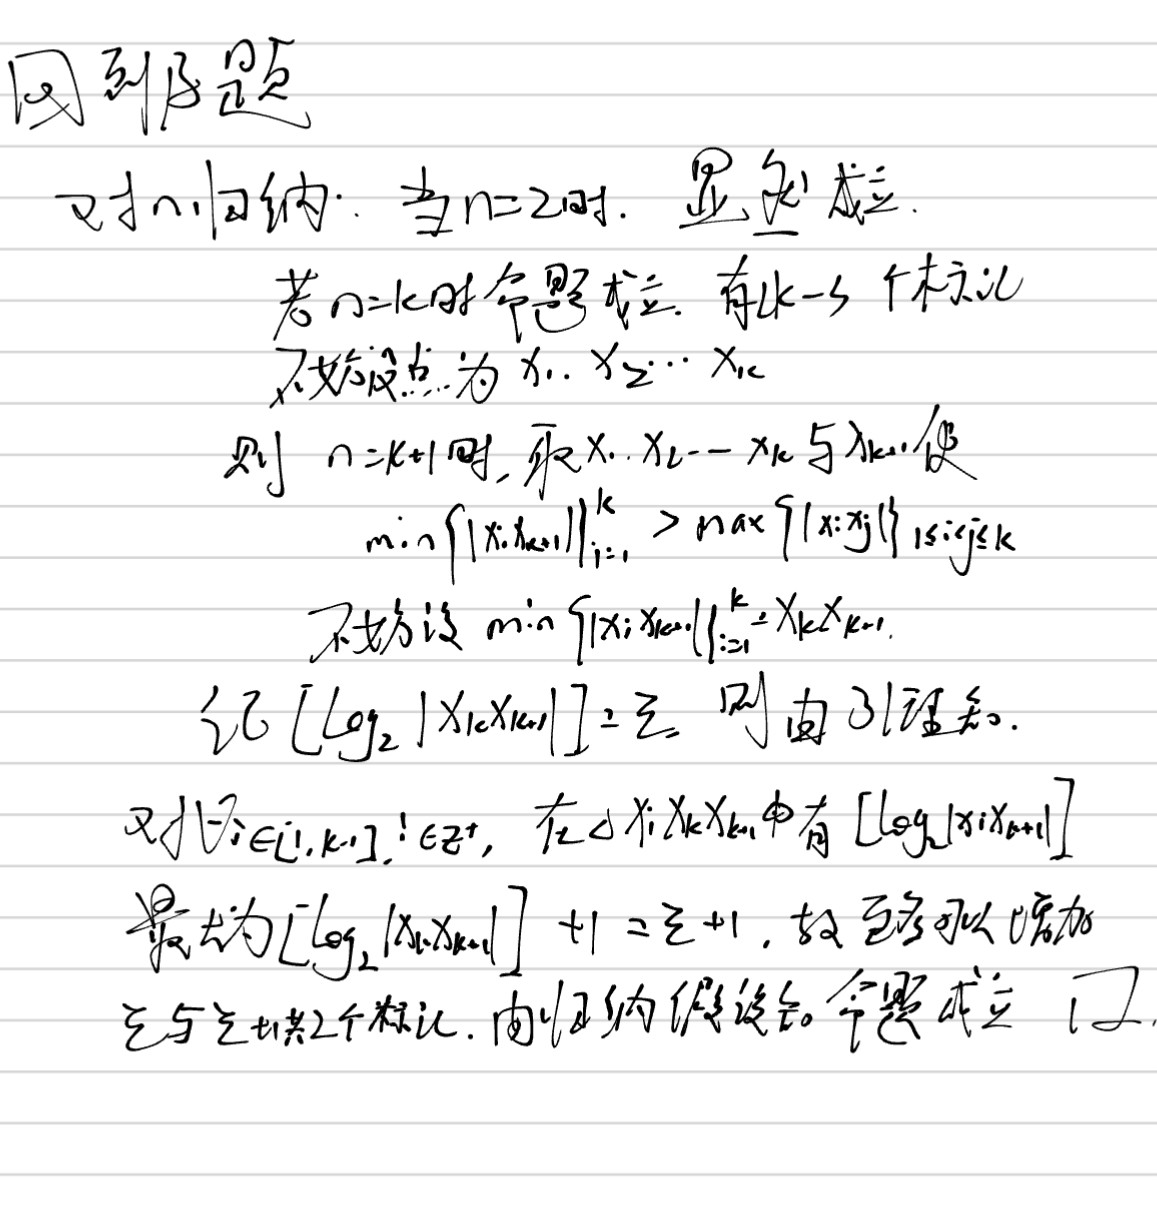 回到原题
对n归纳: 当n=2时. 显然成立.
若n=k时命题成立. 有2k-3个标记
不妨设点为 x₁. x₂... x_k
则 n=k+1时, 取x₁. x₂ --- x_k 与x_{k+1}使
min{|x_i x_{k+1}|}_{i=1}^k > max{|x_i x_j|}_{1≤i<j≤k}
不妨设 min{|x_i x_{k+1}|}_{i=1}^k = x_k x_{k+1}.
记 [log₂ |x_k x_{k+1}|] = z. 则由引理知.
对∀i∈[1,k-1], i∈Z⁺, 在△x_i x_k x_{k+1}中有 [log₂|x_i x_{k+1}|]
最大为[log₂ |x_k x_{k+1}|] +1 = z+1, 故至多可以增加
z与z+1共2个标记. 由归纳假设知命题成立 口.